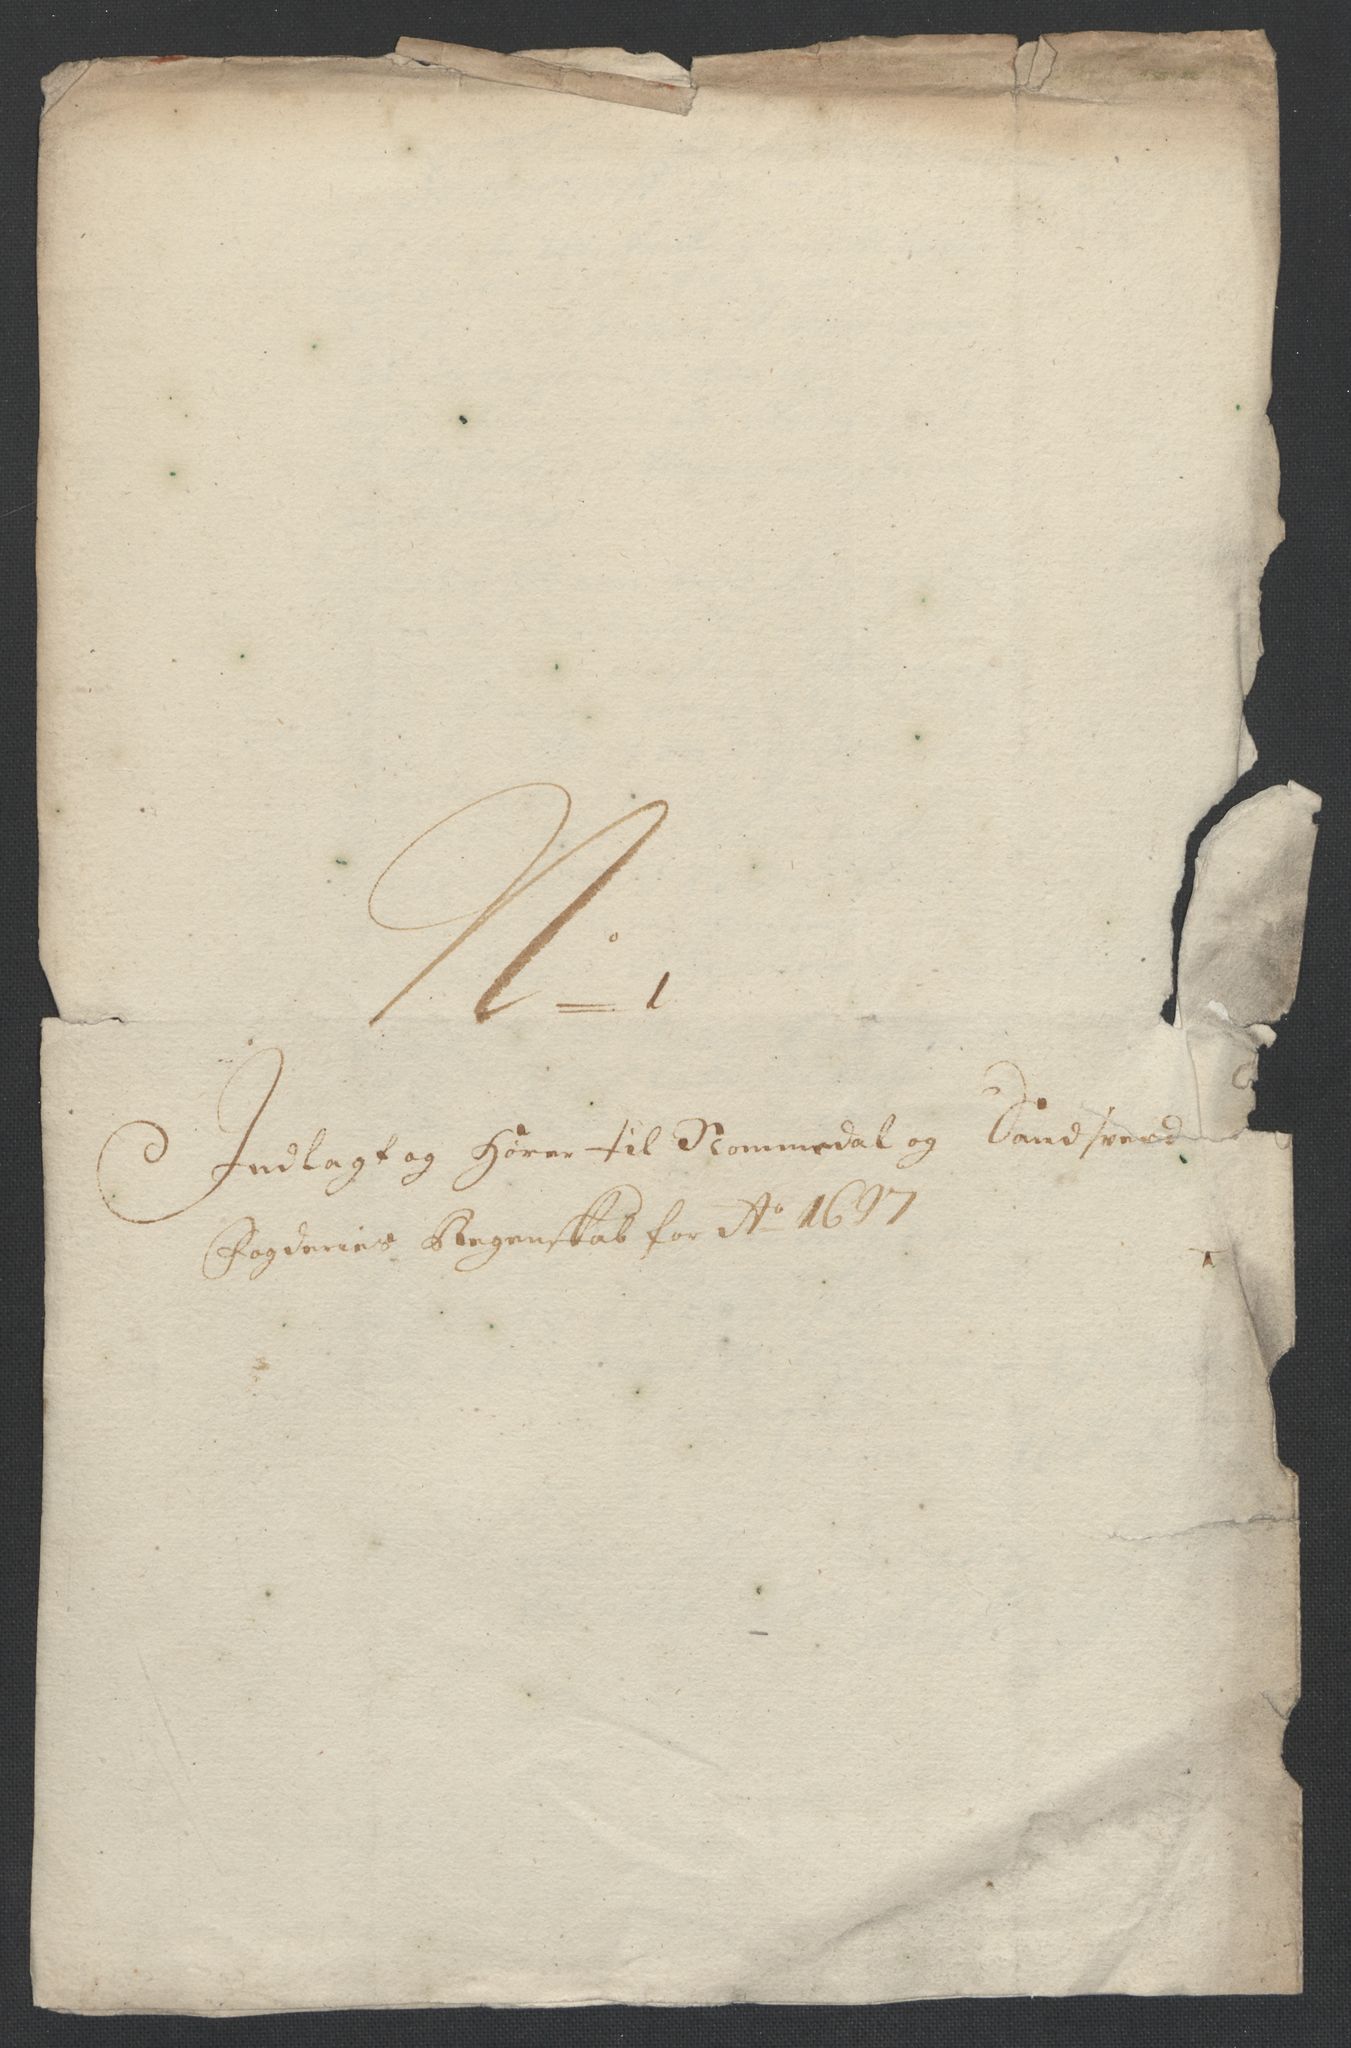 No 1
Indlagt og hører til Nommedal og Sandsverd
Fogderies Regenskab for Ao 1697